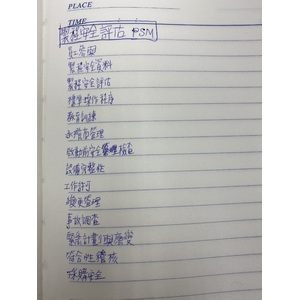 PLACE
TIME
製程安全評估 PSM
員工參與
製程安全資料
製程安全評估
標準操作程序
教育訓練
承攬商管理
啟動前安全檢查
設備完整性
工作許可
變更管理
事故調查
緊急計劃與應變
符合性稽核
採購安全